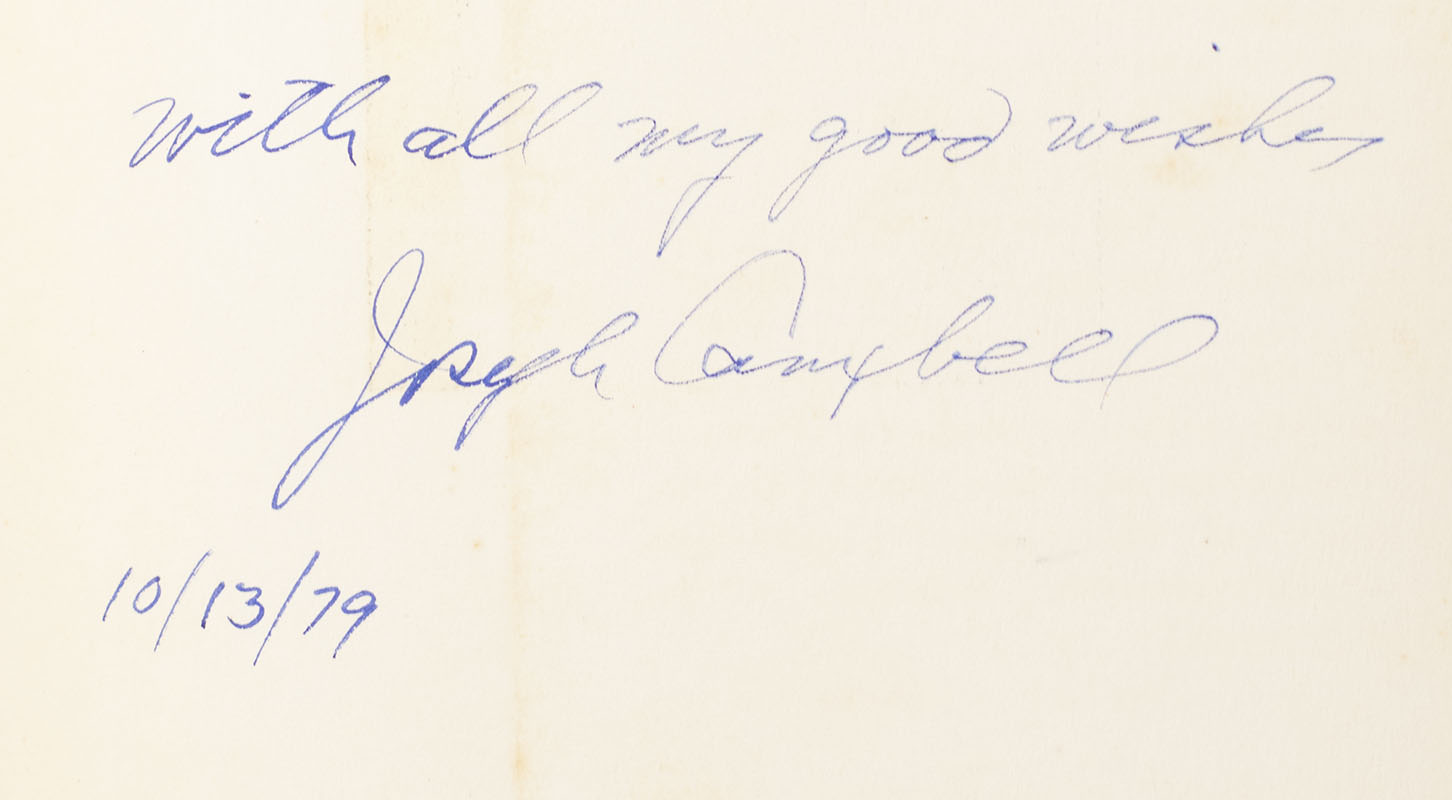 with all my good wishes
Joseph Campbell
10/13/79